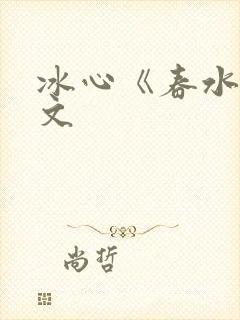 冰心《春水
文
尚哲